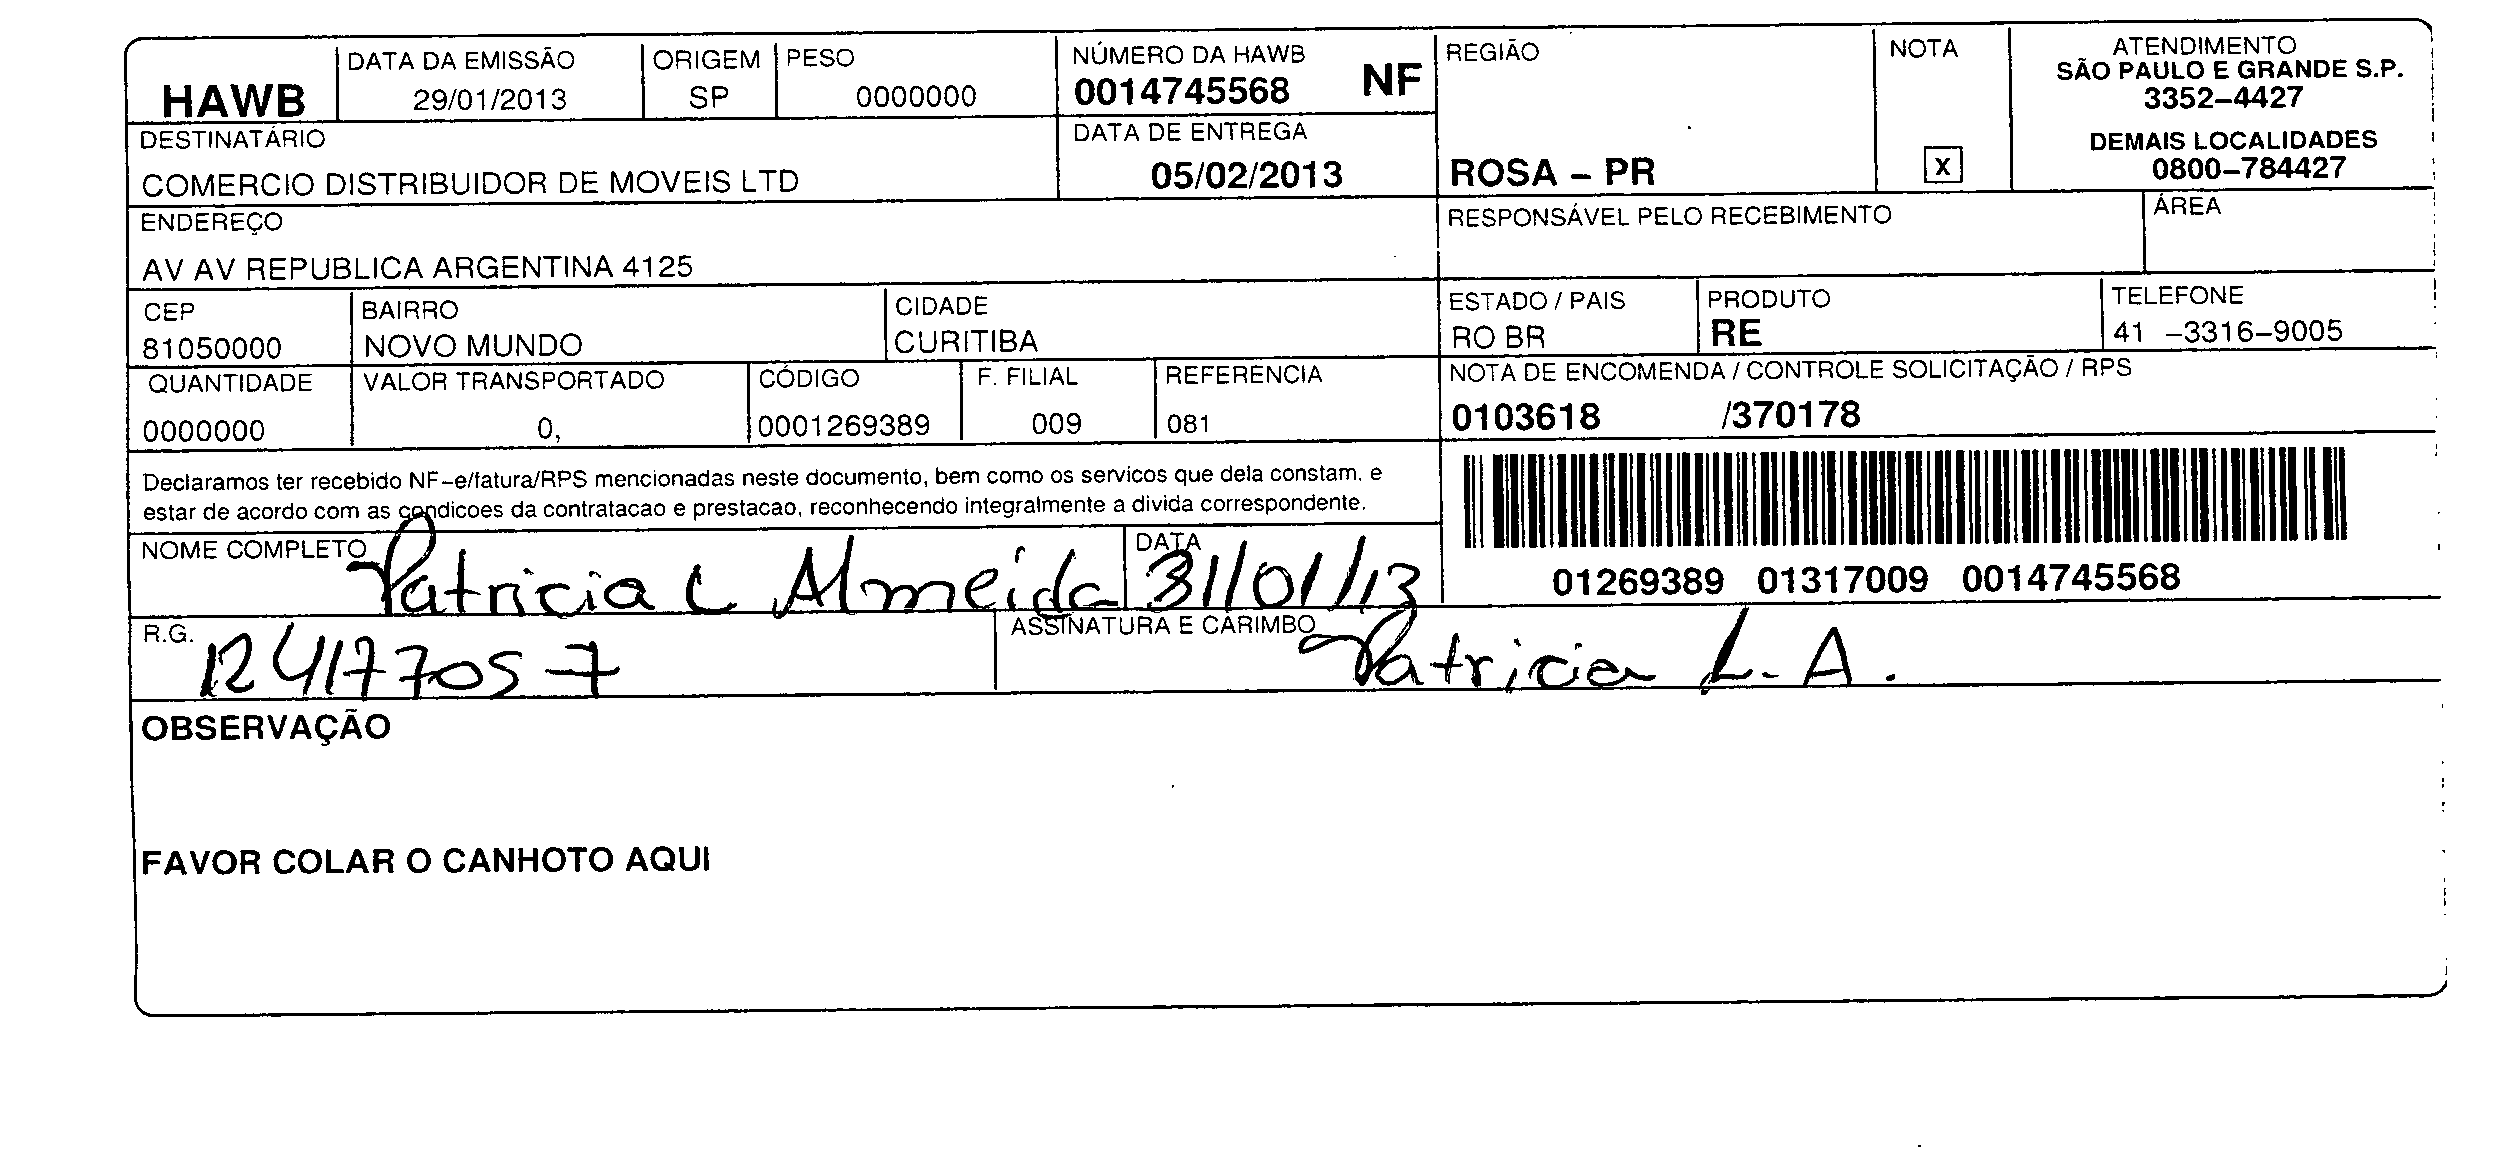 HAWB
DATA DA EMISSÃO
29/01/2013
ORIGEM
SP
PESO
0000000
NÚMERO DA HAWB
0014745568 NF
DATA DE ENTREGA
05/02/2013
REGIÃO
ROSA – PR
NOTA
X
ATENDIMENTO
SÃO PAULO E GRANDE S.P.
3352–4427
DEMAIS LOCALIDADES
0800–784427
DESTINATÁRIO
COMERCIO DISTRIBUIDOR DE MOVEIS LTD
ENDEREÇO
AV AV REPUBLICA ARGENTINA 4125
RESPONSÁVEL PELO RECEBIMENTO
ÁREA
CEP
81050000
BAIRRO
NOVO MUNDO
CIDADE
CURITIBA
ESTADO / PAIS
RO BR
PRODUTO
RE
TELEFONE
41 –3316–9005
QUANTIDADE
0000000
VALOR TRANSPORTADO
0,
CÓDIGO
0001269389
F. FILIAL
009
REFERENCIA
081
NOTA DE ENCOMENDA / CONTROLE SOLICITAÇÃO / RPS
0103618 /370178
Declaramos ter recebido NF–e/fatura/RPS mencionadas neste documento, bem como os servicos que dela constam, e
estar de acordo com as condicoes da contratacao e prestacao, reconhecendo integralmente a divida correspondente.
01269389 01317009 0014745568
NOME COMPLETO
Patricia L Almeida
DATA
31/01/13
R.G.
12417705-7
ASSINATURA E CARIMBO
Patricia L. A.
OBSERVAÇÃO
FAVOR COLAR O CANHOTO AQUI